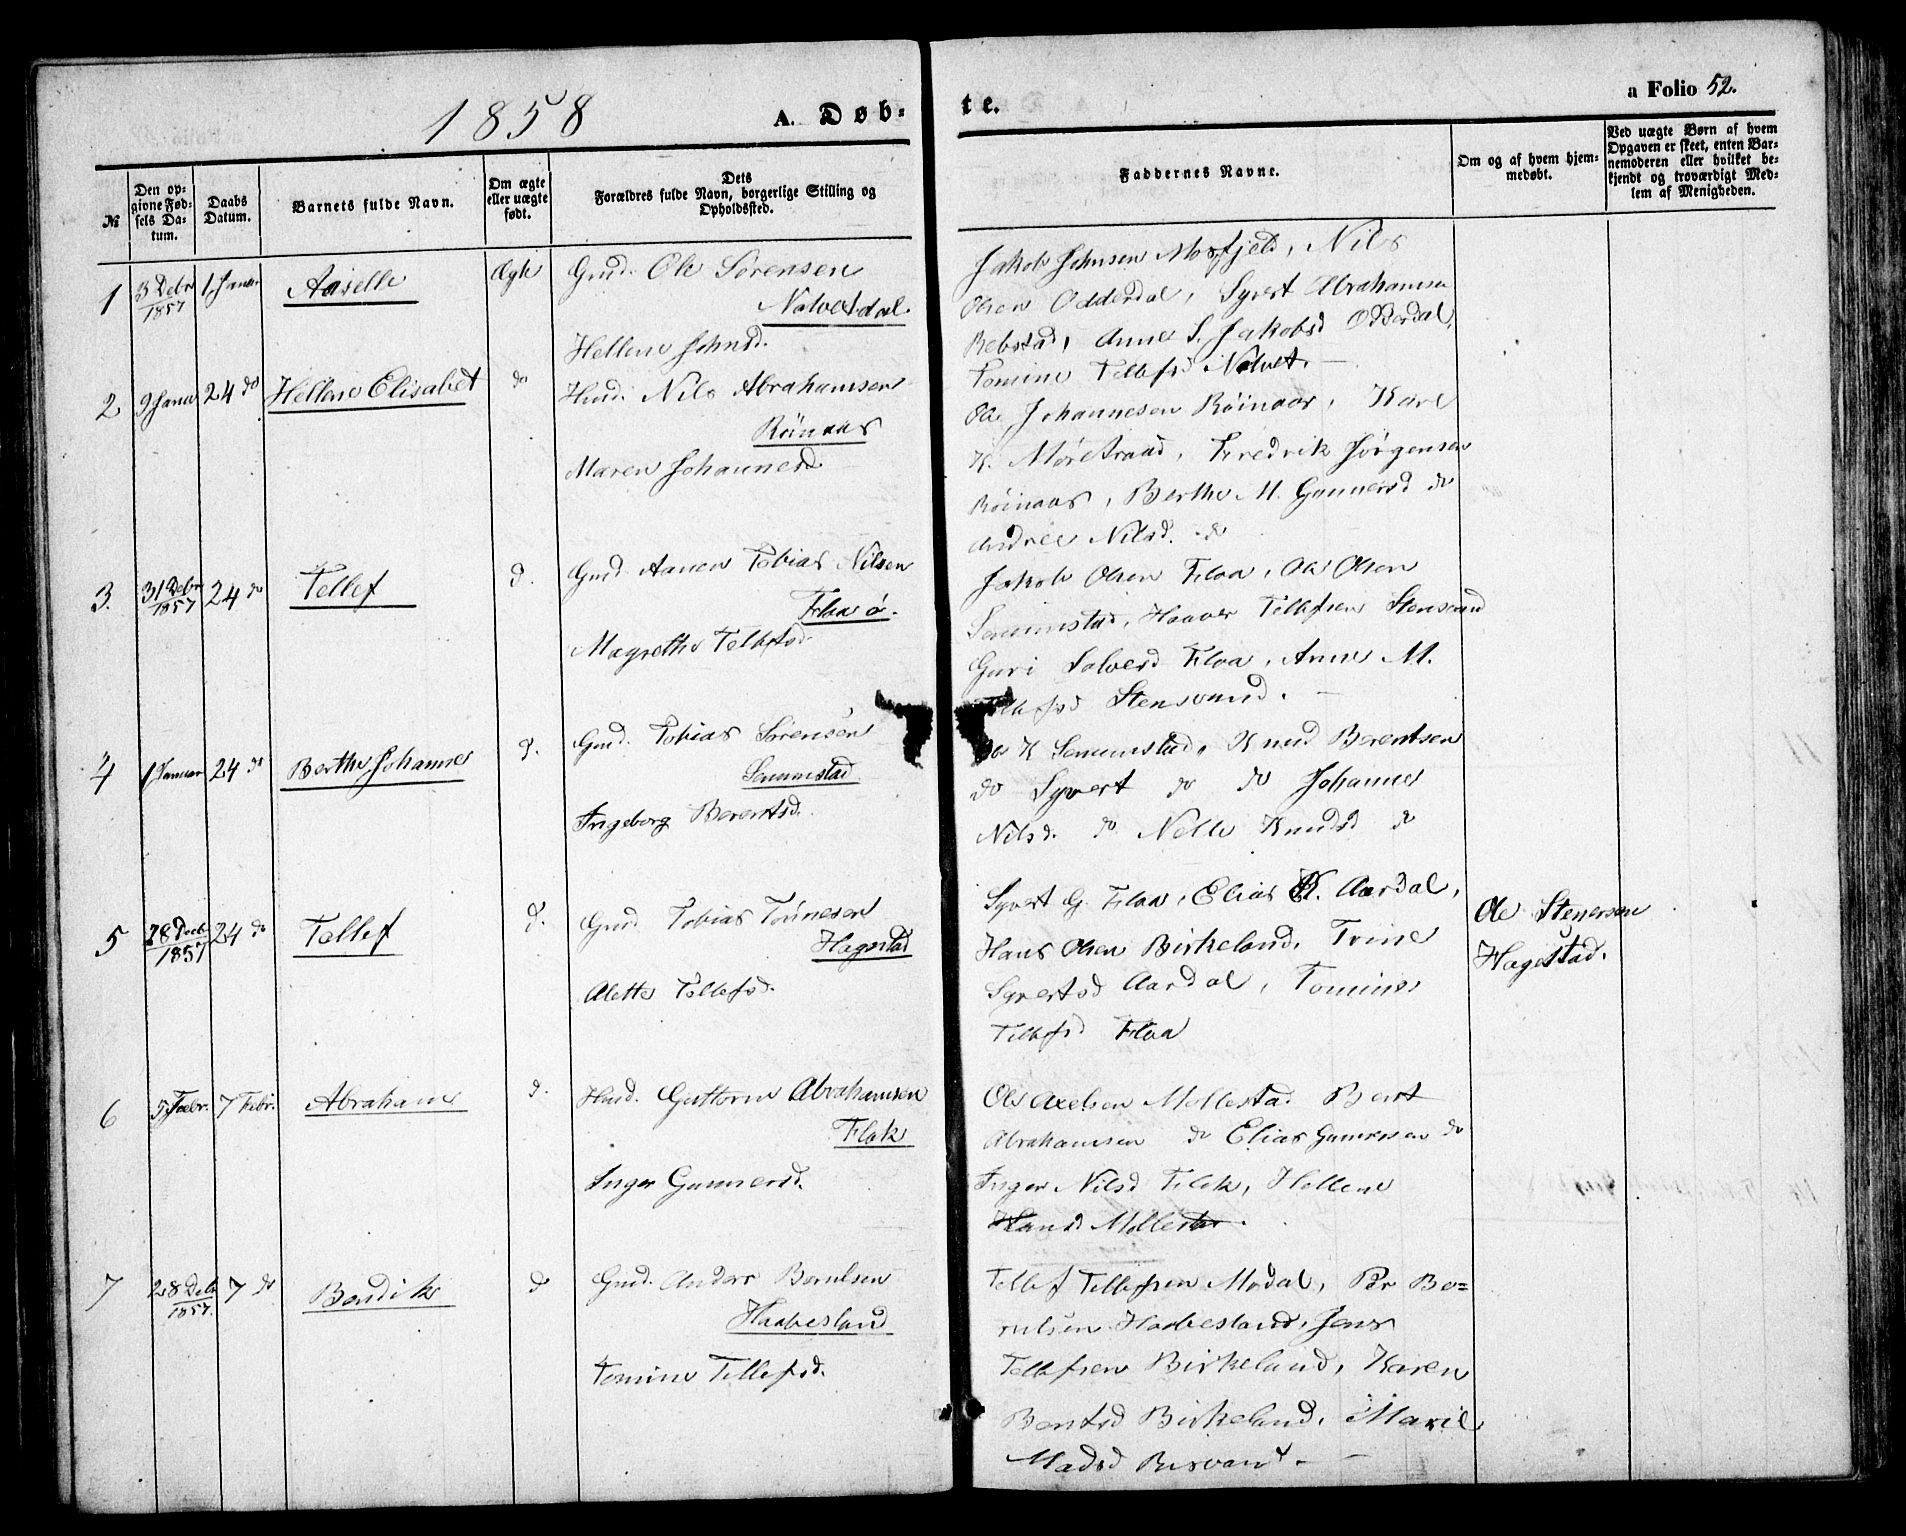 1858
A. Døb-
te.
a Folio 52.
№
Den op-
givne Fød-
sels Da-
tum.
Daabs
Datum.
Barnets fulde Navn.
Om ægte
eller uægte
født.
Dets
Forældres fulde Navn, borgerlige Stilling og
Opholdssted.
Faddernes Navne.
Om og af hvem hjem-
medøbt.
Ved uægte Børn af hvem
Opgaven er skeet, enten Bar-
nemoderen eller hvilket be-
kjendt og troværdigt Med-
lem af Menigheden.
1
3 Debr
1857
1 Januar
Aaselle
Ægte
Gmd. Ole Sørensen
Hellene Johnsd.
Jakob Johnsen Mosfjeld, Nils
Olsen Odderdal, Syvert Abrahamsen
Rebstad, Anne S. Jakobsd Odderdal,
Tomine Tellefsd
2
9 Janu
24 do
Hellene Elisabet
do
Husd. Nils Abrahamsen
Røinaas
Maren Johannesd
Ole Johannesen Røinaas, Karl
K. Mørestraad, Fredrik Jørgensen
Røinaas, Berthe M. Gunnersd do
Andree Nilsd. do
3.
31 Debr
1857
24 do
Tellef
d.
Gmd. Aanen Tobias Nilsen
Flaa ø.
Magrethe Tellefsd
Jakob Olsen Flaa, Ole Olsen
Senumstad, Haaver Tellefsen Stensvand
Guri Salvesd Flaa, Anne M.
Tellefsd Stensvand.
4
1 Januar
24 do
Berthe Johanne
d.
Gmd. Tobias Sørensen
Senumstad
Ingeborg Berentsd.
K Senumstad, Knud Berentsen
do Syvert do do Johanne
Nilsd. do Nelle Knudsd do
5
28 Decb
1857
24 do
Tellef
d.
Gmd. Tobias Tønnesen
Hagestad
Alette Tellefsd.
Syvert G. Flaa, Elias K. Aardal,
Hans Olsen Birkeland, Trine
Syvertsd Aardal, Tomine
Tellefsd Flaa
Ole Stenersen
Hagestad.
6
5 Febr.
7 Febr.
Abraham
d.
Husd. Guttorm Abrahamsen
Flak
Inger Gunnersd.
Ole Axelsen Mollestad Bent
Abrahamsen do Elias Gunnersen do
Inger Nilsd Flak, Hellene
Hansd Mollestad.
7
28 Debr
1857.
7 do
Bendik
d
Gmd. Anders Berulsen
Haabesland
Tomine Tellefsd.
Tellef Tellefsen Modal, Per Be-
rulsen Haabesland, Jens
Tellefsen Birkeland, Karen
Bentsd Birkeland, Marie
Madsd